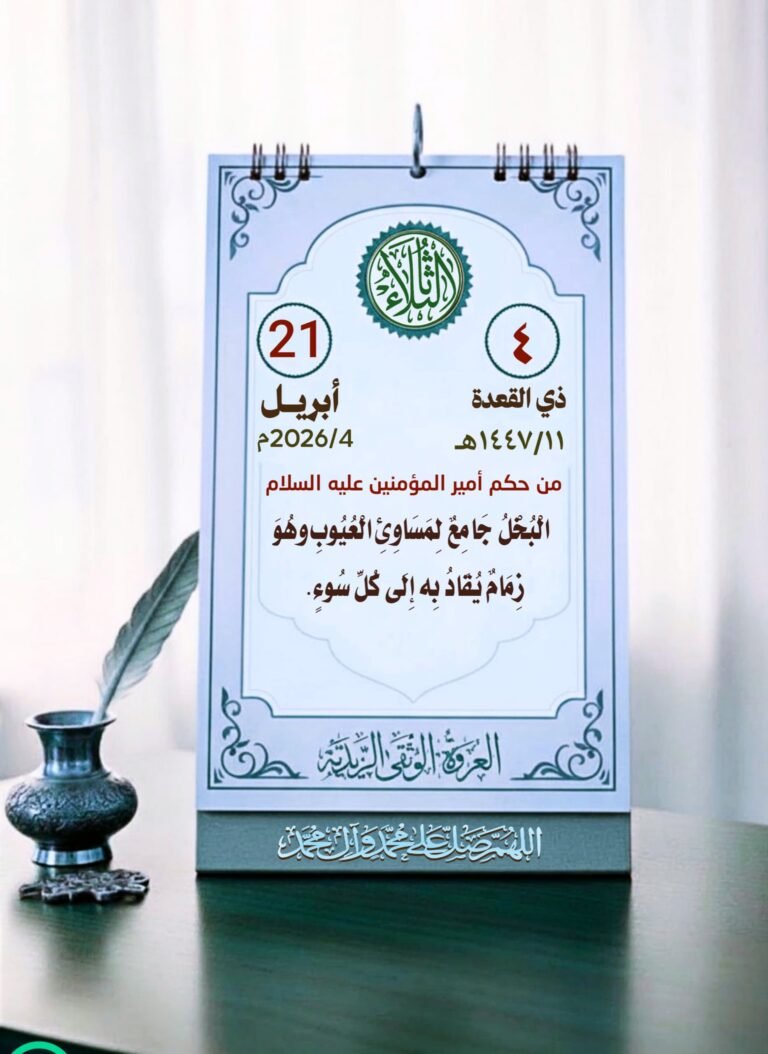 الثلاثاء
٤
21
ذي القعدة
أبريل
١٤٤٧/١١هـ
2026/4م
من حكم أمير المؤمنين عليه السلام
الْبُخْلُ جَامِعٌ لِمَسَاوِئِ الْعُيُوبِ وهُوَ
زِمَامٌ يُقَادُ بِه إِلى كُلِّ سُوءٍ.
العروة الوثقى الزيدية
اللهم صل على محمد وآل محمد